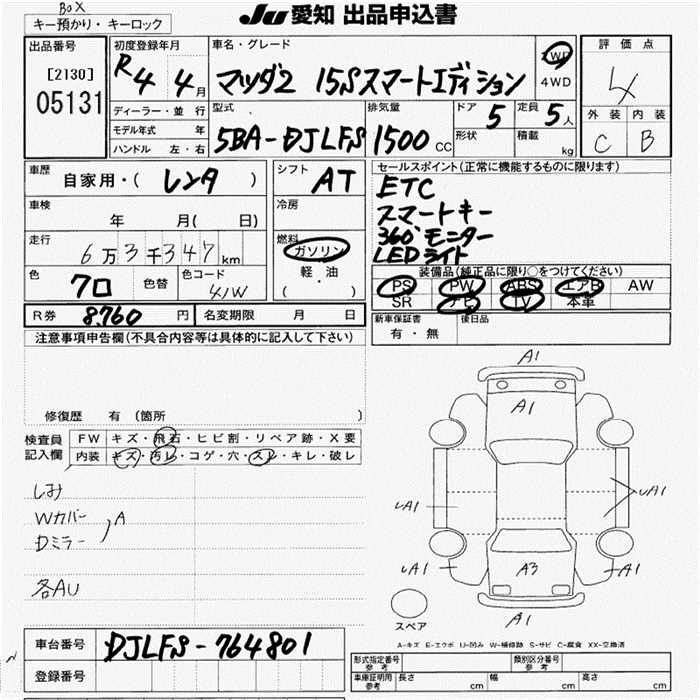 BOX
キー預かり・キーロック
JU 愛知 出品申込書
出品番号
[2130]
05131
初度登録年月
R4 4月
車名・グレード
マツダ2 15Sスマートエディション
2WD
4WD
評価点
4
外装 内装
C B
ディーラー・並行
モデル年式 年
ハンドル 左・右
型式
5BA-DJLFS
排気量
1500 CC
ドア
5
定員
5人
形状
積載
kg
車歴
自家用・(レンタ)
シフト
AT
車検
年 月( 日)
冷房
走行
6万3千347km
燃料
ガソリン
軽・油
( ・ )
色
クロ
色替
色コード
41W
R券 8,760円
名変期限 月 日
セールスポイント(正常に機能するものに限ります)
ETC
スマートキー
360°モニター
LEDライト
装備品(純正品に限り○をつけてください)
PS PW ABS エアB AW
SR ナビ TV 本革
新車保証書
有・無
後日品
注意事項申告欄(不具合内容等は具体的に記入して下さい)
修復歴 有 (箇所 )
検査員
記入欄
FW キズ・飛石・ヒビ割・リペア跡・X要
内装 キズ・汚レ・コゲ・穴・スレ・キレ・破レ
しみ
Wカバー
Dミラー
A
各AU
A1
A1
UA1
UA1
UA1
A3
A1
A1
スペア
A-キズ E-エクボ U-凹み W-補修跡 S-サビ C-腐食 XX-交換済
車台番号 DJLFS-764801
登録番号
型式指定番号
参考
類別区分番号
参考
車庫証明用
参考
長さ cm
幅 cm
高さ cm